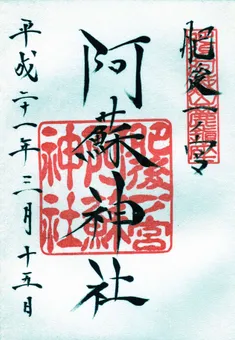 肥後一之宮
阿蘇神社
平成二十一年三月十五日
肥後一宮
阿蘇
神社